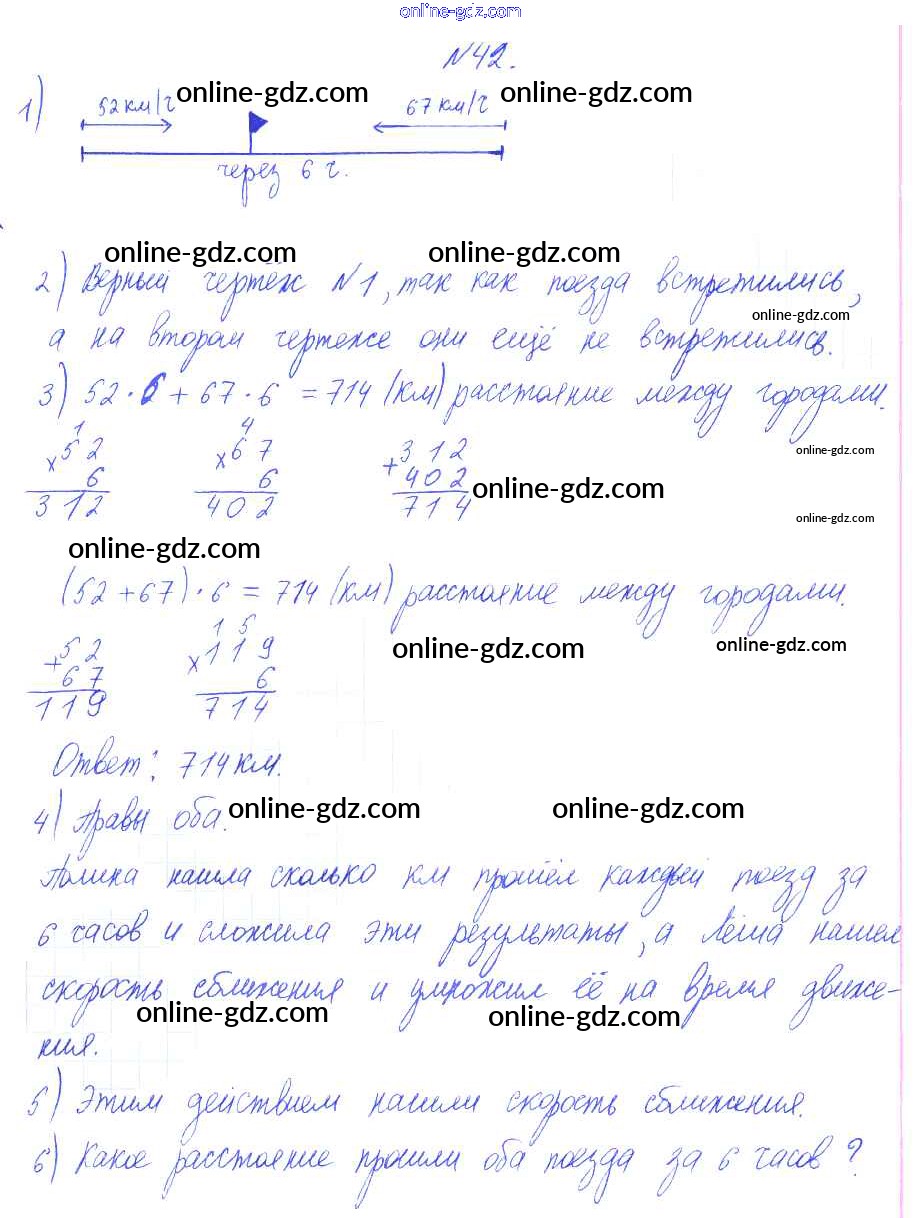 online-gdz.com
№42.
1) 52 км/ч online-gdz.com 67 км/ч online-gdz.com
через 6 ч.
online-gdz.com online-gdz.com
2) Верный чертёж №1, так как поезда встретились,
online-gdz.com
а на втором чертеже они ещё не встретились.
3) 52 · 6 + 67 · 6 = 714 (км) расстояние между городами.
1 4
× 52 × 67 + 312 online-gdz.com
6 6 402 online-gdz.com
312 402 714 online-gdz.com
online-gdz.com
(52 + 67) · 6 = 714 (км) расстояние между городами.
1 5
+ 52 × 119 online-gdz.com online-gdz.com
67 6
119 714
Ответ: 714 км.
4) Правы оба. online-gdz.com online-gdz.com
Полина нашла сколько км прошёл каждый поезд за
6 часов и сложила эти результаты, а Лёша нашел
скорость сближения и умножил её на время движе-
online-gdz.com online-gdz.com
ния.
5) Этим действием нашли скорость сближения.
6) Какое расстояние прошли оба поезда за 6 часов?